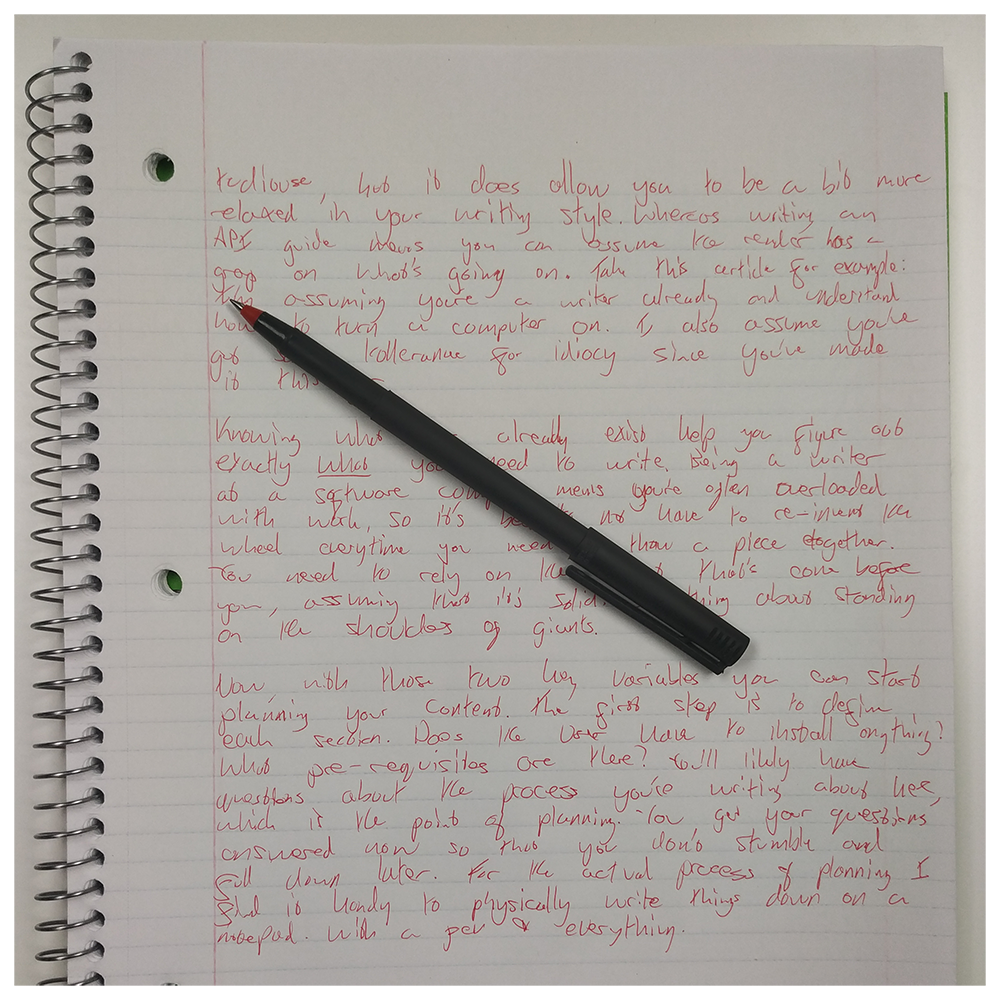 tediouse, but it does allow you to be a bit more
relaxed in your writing style. Whereas writing an
API guide means you can assume the reader has a
grasp on what's going on. Take this article for example:
I'm assuming you're a writer already and understand
how to turn a computer on. I also assume you've
got kolleranue for idiocy since you've made
it this
Knowing what already exist help you figure out
exactly what you need to write. Being a writer
at a software means you're often overloaded
with work, so it's not have to re-invent the
wheel everytime you need than a piece together.
You need to rely on the that's come before
you, assuming that it's solid. about standing
on the shoulders of giants.
Now with those two key variables you can start
planning your content. The first step is to define
each section. Does the user have to install anything?
What pre-requisites are there? You'll likely have
questions about the process you're writing about here,
which is the point of planning. You get your questions
answered now so that you don't stumble and
fall down later. For the actual process of planning I
find it handy to physically write things down on a
notepad. With a pen & everything.